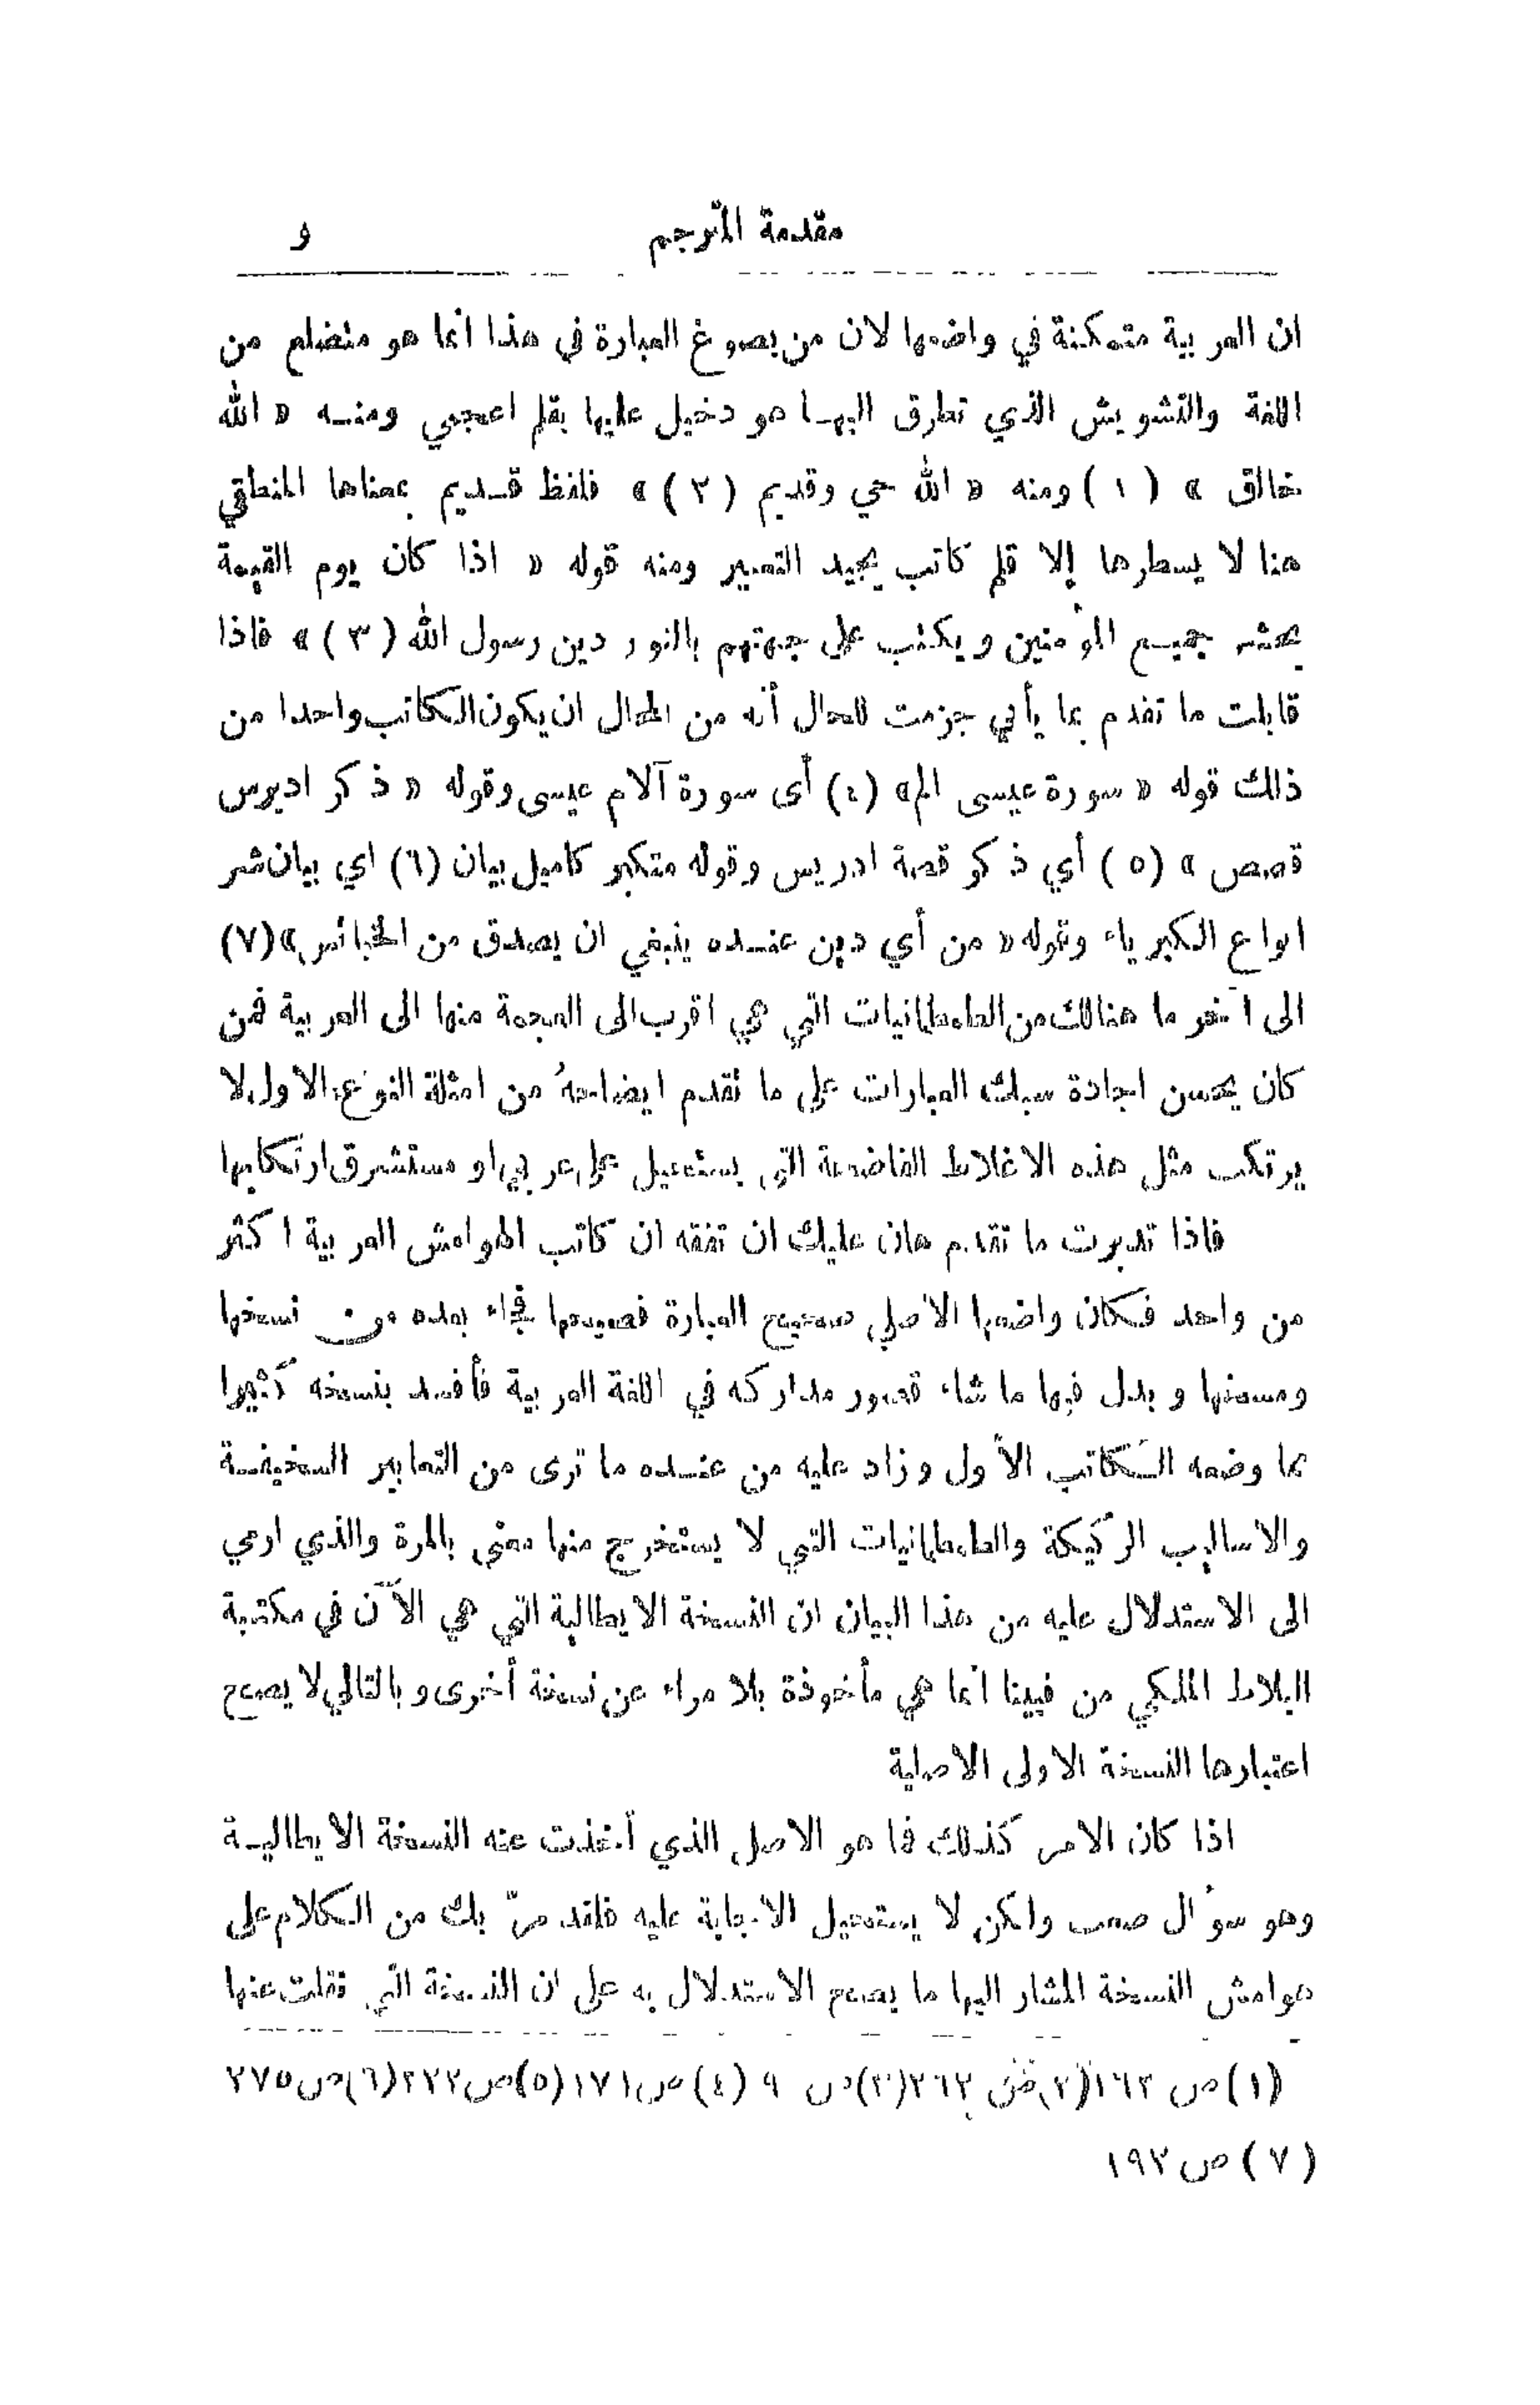 مقدمة المترجم
و
ان العربية متمكنة في واضعها لان من يصوغ العبارة في هذا انما هو متضلع من
اللغة والتشويش الذي تطرق اليها هو دخيل عليها بقلم اعجمي ومنه « الله
خالق » (١) ومنه « الله حي وقديم (٢) » فلفظ قديم بمعناها المنطقي
هنا لا يسطرها إلا قلم كاتب يجيد التعبير ومنه قوله « اذا كان يوم القيمة
يحشر جميع المؤمنين ويكتب على جبهتهم بالنور دين رسول الله (٣) » فاذا
قابلت ما تقدم بما يأتي جزمت للحال أنه من المحال ان يكون الكاتب واحدا من
ذلك قوله « سورة عيسى الم» (٤) أى سورة آلام عيسى وقوله « ذكر ادبرس
قصص » (٥) أي ذكر قصة ادريس وقوله متكبر كاميل بيان (٦) اي بيان شر
انواع الكبرياء وقوله « من أي دين عنده ينبغي ان يصدق من الخبائر»(٧)
الى آخر ما هنالك من الطمطمانيات التي هي اقرب الى العجمة منها الى العربية فمن
كان يحسن اجادة سبك العبارات على ما تقدم ايضاحهُ من امثلة النوع الاول لا
يرتكب مثل هذه الاغلاط الفاضحة التي يستحيل على عربي او مستشرق ارتكابها
فاذا تدبرت ما تقدم هان عليك ان تفقه ان كاتب الهوامش العربية اكثر
من واحد فكان واضعها الأصلي صحيح العبارة فصيحها فجاء بعده من نسخها
ومسخها وبدل فيها ما شاء قصور مداركه في اللغة العربية فأفسد بنسخه كثيرا
مما وضعه الكاتب الأول وزاد عليه من عنده ما ترى من التعابير السخيفة
والاساليب الركيكة والطمطمانيات التي لا يستخرج منها معنى بالمرة والذي ارمي
الى الاستدلال عليه من هذا البيان ان النسخة الايطالية التي هي الآن في مكتبة
البلاط الملكي من فيينا انما هي مأخوذة بلا مراء عن نسخة أخرى وبالتالي لا يصح
اعتبارها النسخة الاولى الاصلية
اذا كان الامر كذلك فما هو الاصل الذي أخذت عنه النسخة الايطالية
وهو سؤال صعب ولكن لا يستحيل الاجابة عليه فلقد مرّ بك من الكلام على
هوامش النسخة المشار اليها ما يصح الاستدلال به على ان النسخة التي نقلت عنها
(١) ص ١٦٢(٢) ص ٢٦٢(٣) ص ٩ (٤) ص ١٧١(٥) ص ٢٢٢(٦) ص ٢٧٥
(٧) ص ١٩٢